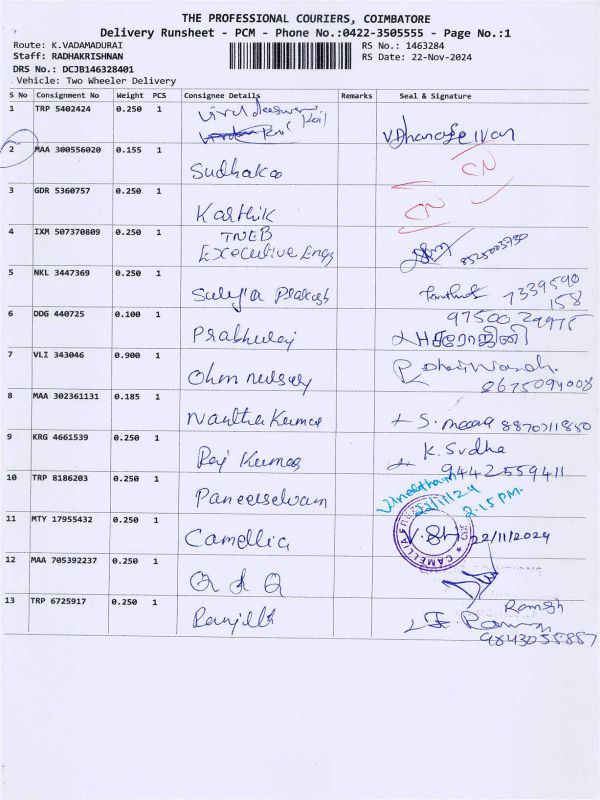 THE PROFESSIONAL COURIERS, COIMBATORE
Delivery Runsheet - PCM - Phone No.:0422-3505555 - Page No.:1
Route: K.VADAMADURAI RS No.: 1463284
Staff: RADHAKRISHNAN RS Date: 22-Nov-2024
DRS No.: DCJB146328401
Vehicle: Two Wheeler Delivery
S No Consignment No Weight PCS Consignee Details Remarks Seal & Signature
1 TRP 5402424 0.250 1
2 MAA 300556020 0.155 1 CN
Sudhakar
3 GDR 5360757 0.250 1 CN
Karthik
4 IXM 507370809 0.250 1 TNEB
Executive Engg 8525003930
5 NKL 3447369 0.250 1
Surya Prakash 7339590
158
6 DDG 440725 0.100 1
Prabhuraj சரோஜினி
7 VLI 343046 0.900 1
Ohm nursery
8675094008
8 MAA 302361131 0.185 1
Nantha Kumar
9 KRG 4661539 0.250 1 K. Sudha
Raj Kumar 9442559411
10 TRP 8186203 0.250 1
Paneerselvam 22/11/24 2.15 PM
11 MTY 17955432 0.250 1 CAMELLIA
Camellia 22/11/2024
12 MAA 705392237 0.250 1
13 TRP 6725917 0.250 1 Ramesh
Ranjith
9843055887